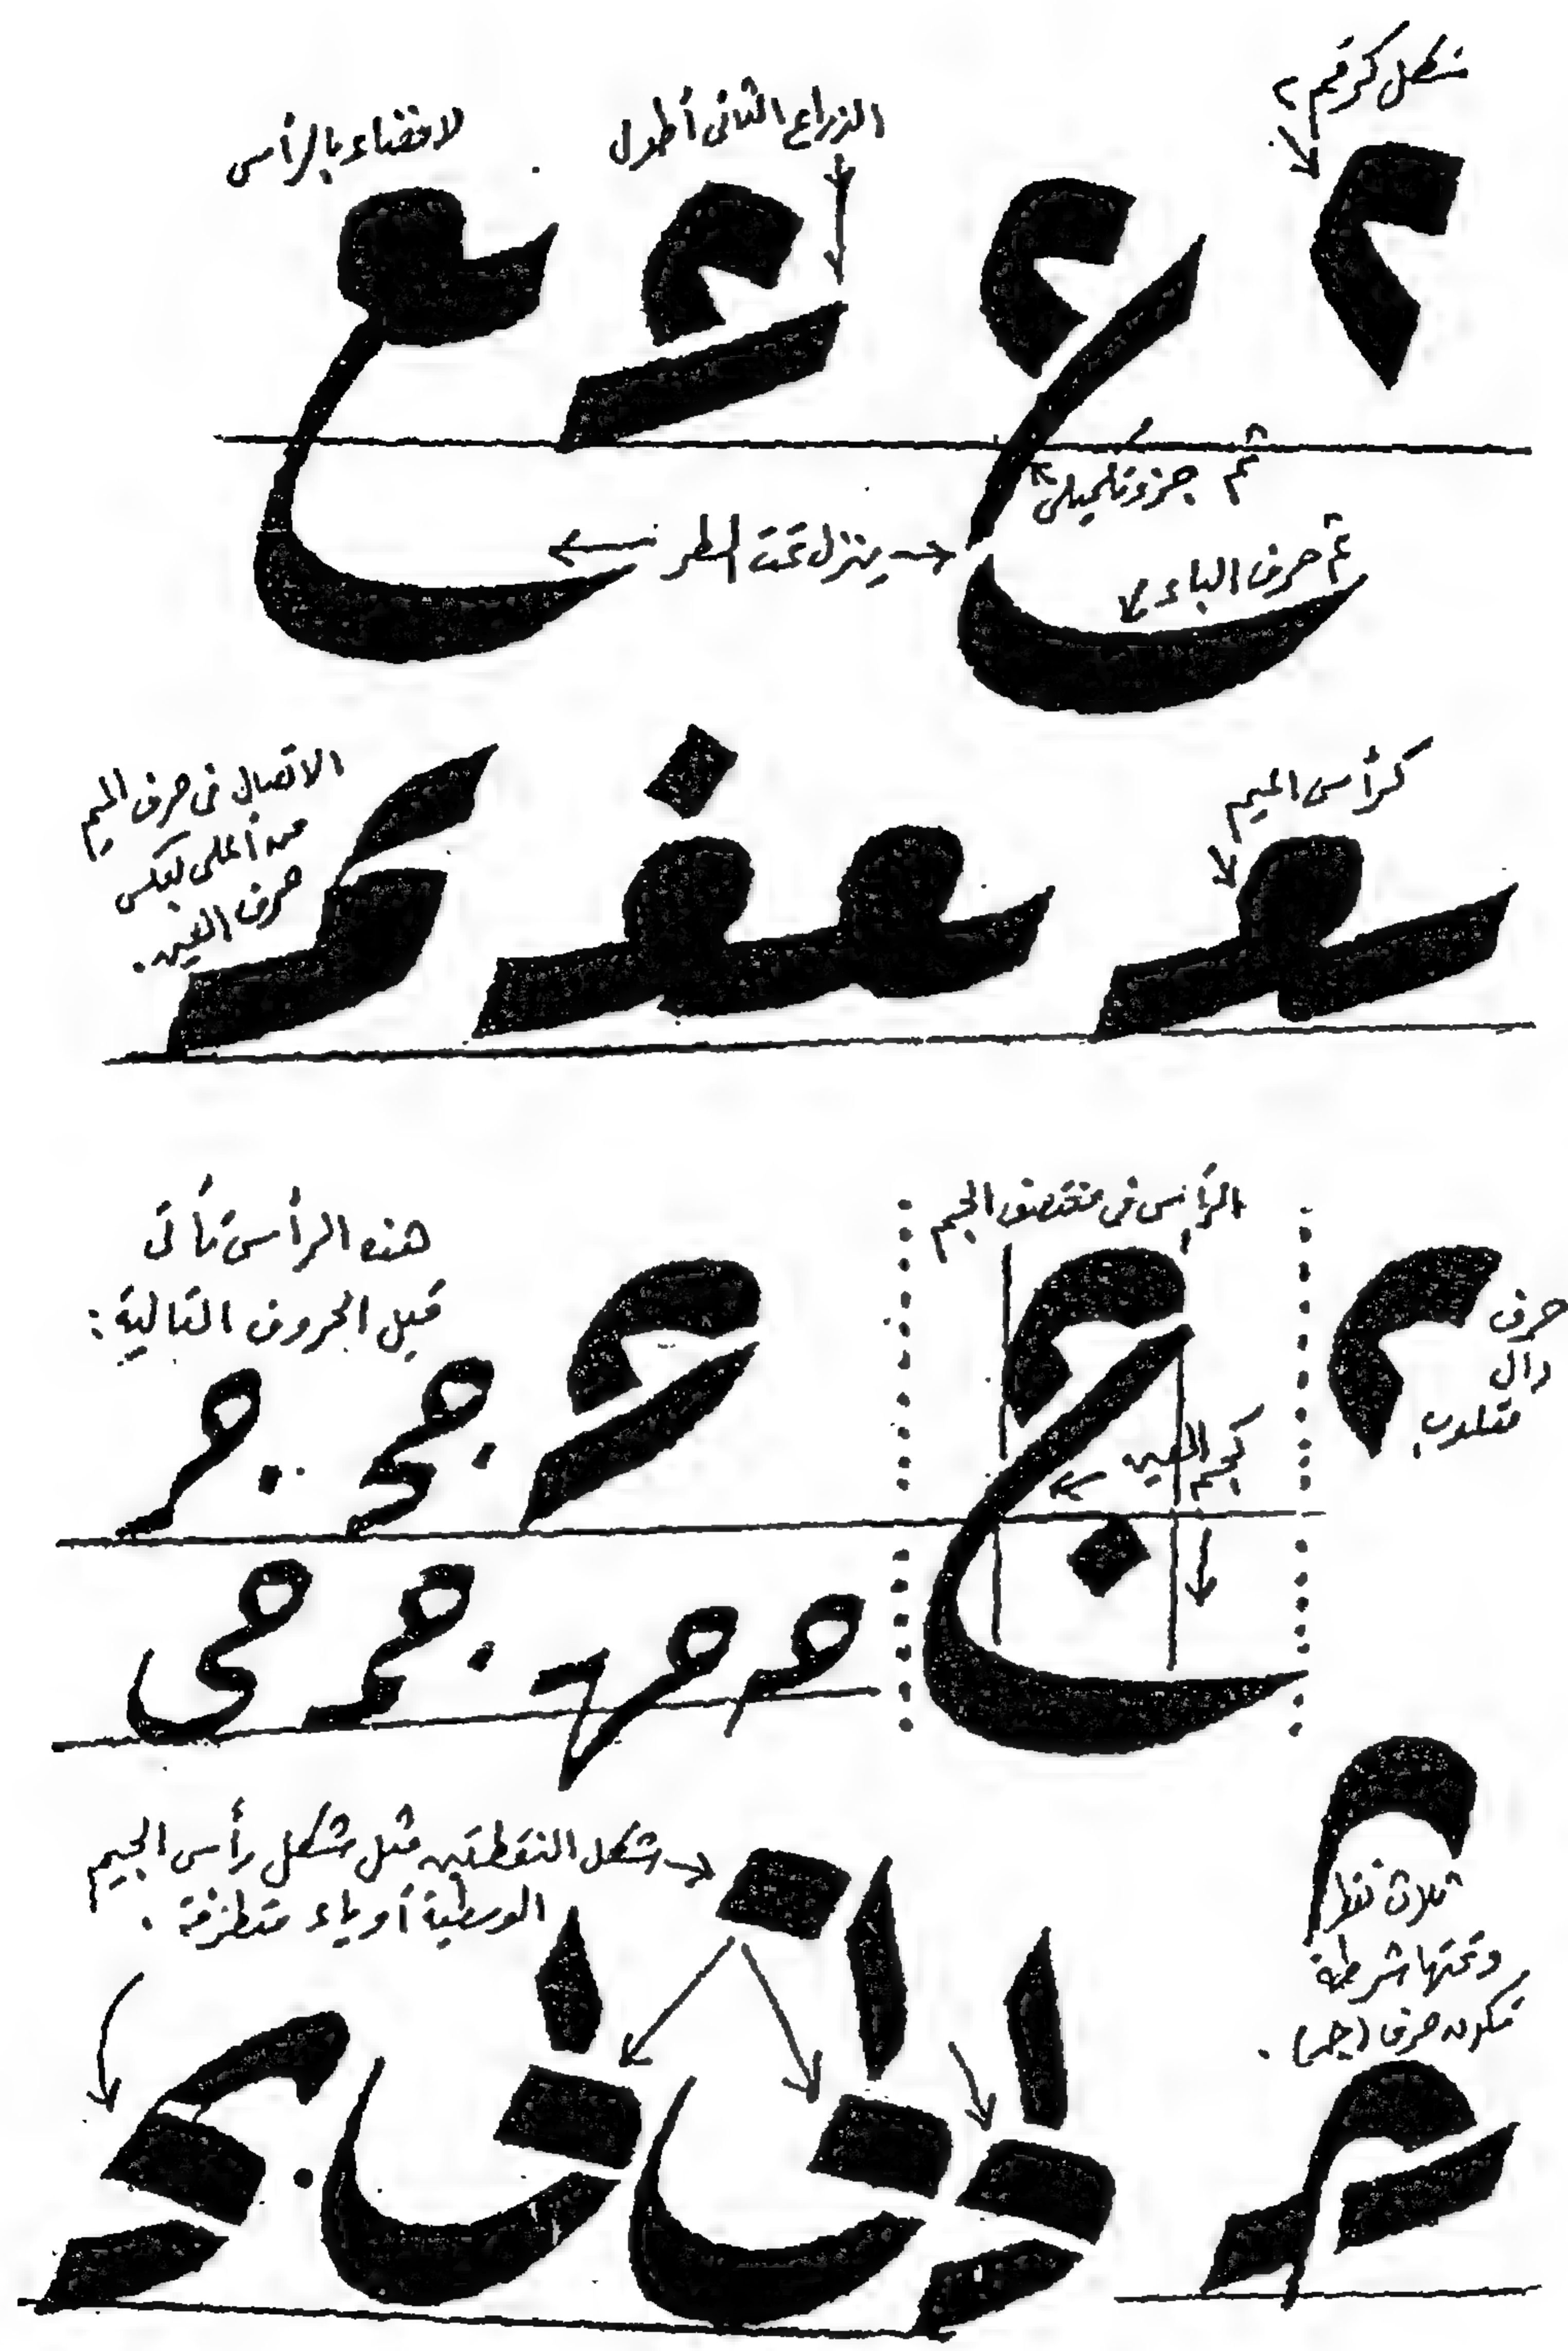 شكل كرقم ٢
الزراع الثانى أطول
لا فضاء بالرأس
ثم جزء تكميلى
ثم حرف الباء
ينزل تحت السطر
كرأس الميم
الاتصال فى حرف الميم
من أعلى بعكس
حرف العين.
حرف
دال
مقلوب
الرأس فى منتصف الجيم
كجسم العين
هذه الرأس تأتى
قبل الحروف التالية:
ثلاث نقط
وتحتها شرطة
تكون حرف (جـ).
شكل النقطتين مثل شكل رأس الجيم
الوسطية أو ياء متطرفة.